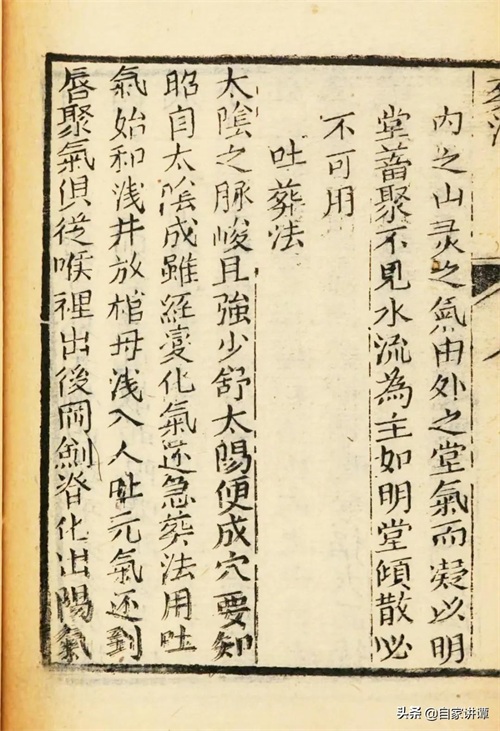 內之山灵之氣由外之堂氣而凝以明
堂蓄聚不見水流為主如明堂傾散必
不可用
吐葬法
太陰之脉峻且強少舒太陽便成穴要知
昭自太陰成雖経変化氣还急葬法用吐
氣始和浅井放棺毋浅入人吐元氣还到
唇聚氣俱從喉裡出後岡劍脊化出陽氣
头条 @自家讲谭